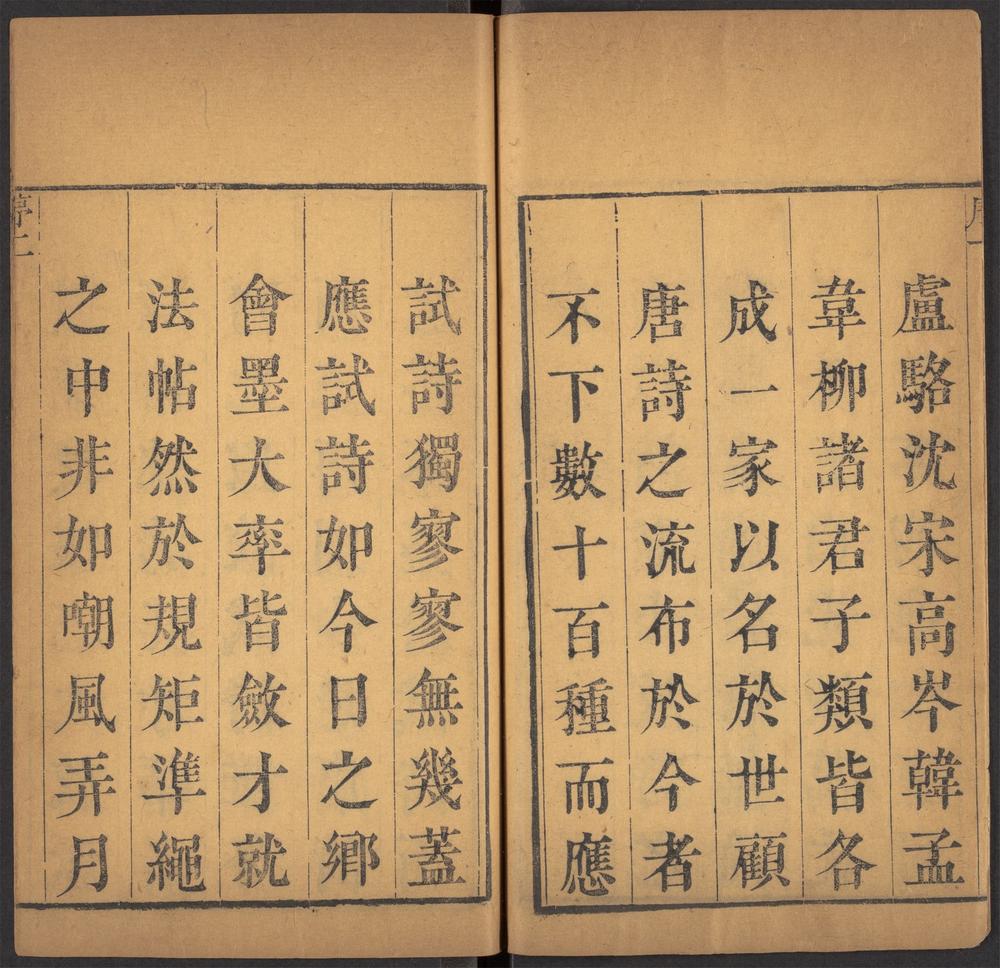 盧駱沈宋高岑韓孟
韋柳諸君子類皆各
成一家以名於世顧
唐詩之流布於今者
不下數十百種而應
試詩獨寥寥無幾蓋
應試詩如今日之鄉
會墨大率皆斂才就
法帖然於規矩準繩
之中非如嘲風弄月